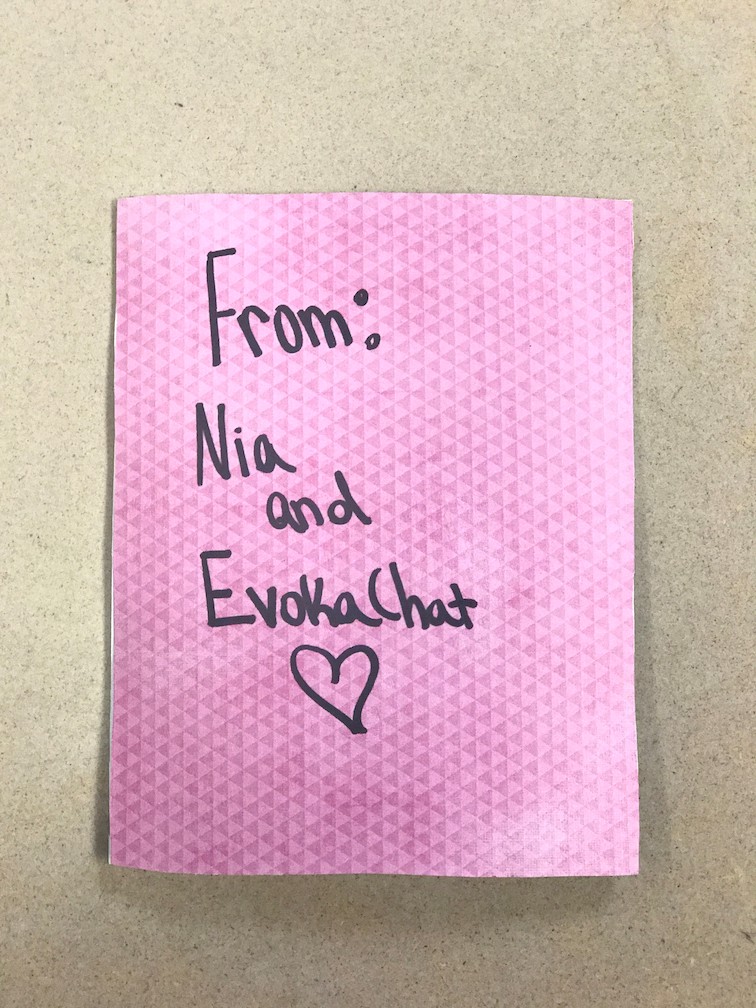 From:
Nia
and
EvokaChat